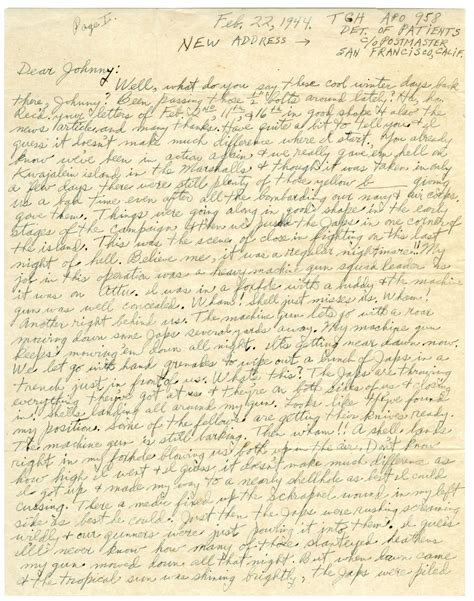 Page I.
Feb. 22, 1944.
TGH APO 958
DET. OF PATIENTS
NEW ADDRESS → C/O POSTMASTER
SAN FRANCISCO, CALIF.
Dear Johnny:
Well, what do you say these cool winter days back
there, Johnny? Been passing those 2 bolts around lately? Ha, ha.
Rec'd your letters of Feb. 2nd, 11th, & 16th in good shape & also the
news article and many thanks. Have quite a bit to tell you & I
guess it doesn't make much difference where I start. You already
know we've been in action again & we really gave em hell on
Kwajalein island in the Marshalls & though it was taken in only
a few days there were still plenty of those yellow b____ giving
us a bad time even after all the bombarding our navy & air corps.
gave them. Things were going along in good shape in the early
stages of the campaign & then we push the Japs in one corner of
the island. This was the scene of close in fighting on this last
night of hell. Believe me, it was a regular nightmare!! My
job in this operation was a heavy machine gun squad leader as
it was on Attu. I was in a foxhole with a buddy & the machine
gun was well concealed. Wham! Shell just misses us. Wham!
Another right behind us. The machine gun lets go with a roar
mowing down some Japs several yards away. My machine gun
keeps mowing em down all night. It's getting near dawn now.
We let go with hand grenades to wipe out a bunch of Japs in a
trench just in front of us. What's this? The Japs are throwing
everything they've got at us & they're on both sides of us & closing
in. Shells landing all around my gun. Looks like they've found
my position. Some of the fellows are getting their knives ready.
The machine gun is still barking. Then wham!! A shell lands
right in my foxhole blowing us both up in the air. Don't know
how high I went & I guess it doesn't make much difference as
I got up & made my way to a nearby shellhole as best I could
cussing. There a medic fixed up the schrapnel wound in my left
side as best he could. Just then the Japs were rushing screaming
wildly & our gunners were just pouring it into them. I guess
I'll never know how many of those slanteyed heathens
my gun mowed down all that night. But when dawn came
& the tropical sun was shining brightly, the Japs were piled